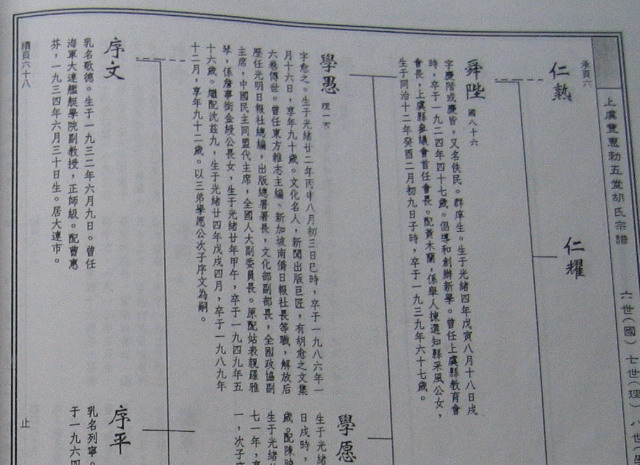 上虞豐惠勅五堂胡氏宗譜
六世(國)七世(理)八世
承頁六
仁熱
仁耀
舜陛
國八十六
字慶階或慶皆，又名佚民。群庠生。生于光緒四年戊寅八月十八日戌
時，卒于一九二四年四十七歲。倡導和創辦新學。曾任上虞縣教育會
會長，上虞縣參議會首任會長。配黃木蘭，係舉人揀選知縣采風公女，
生于同治十二年癸酉二月初九日子時，卒于一九三九年六十七歲。
學愚
理一
字愈之。生于光緒廿二年丙申八月初三日巳時，卒于一九八六年一
月十六日，享年九十歲。文化名人，新聞出版巨匠，有胡愈之文集
六卷傳世。曾任東方雜志主編、新加坡南僑日報社長等職，解放後
歷任光明日報社總編，出版總署署長，文化部副部長，全國政協副
主席，中國民主同盟代主席，全國人大副委員長。原配姑表親羅雅
琴，係詹事街金綬公長女，生于光緒廿年甲午，卒于一九四九年五
十六歲。繼配沈茲九，生于光緒廿四年戊戌四月，卒于一九八九年
十二月，享年九十二歲。以三弟學愿公次子序文為嗣。
學愿
生于光緒
日戌時，
歲。配陳
生于光緒
七一年，享
一，次子序
序文
乳名敬德。生于一九三二年六月九日。曾任
海軍大連艦艇學院副教授，正師級。配曹惠
芬，一九三四年六月三十日生。居大連市。
序平
乳名列寧。
于一九六四
續頁六十八
止